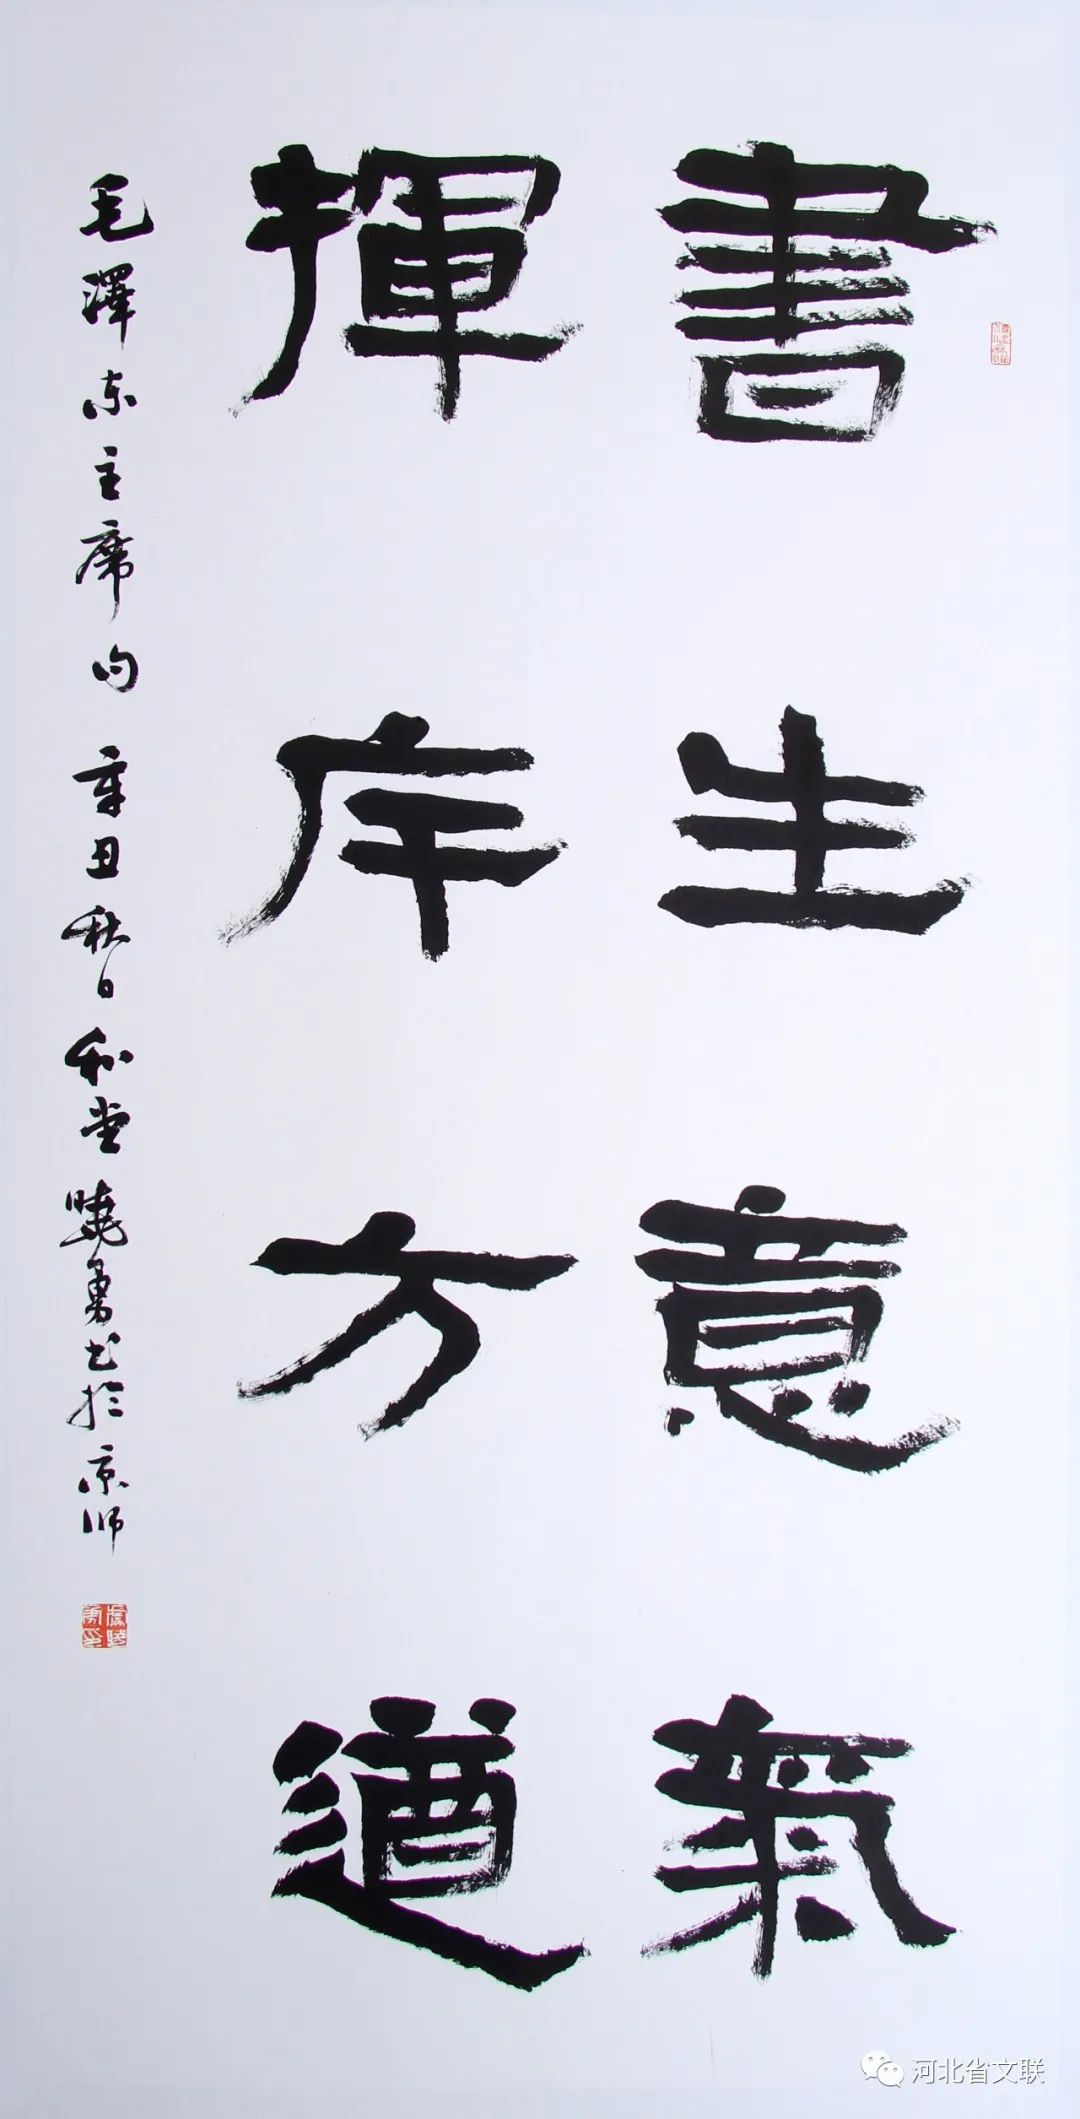 書生意氣
揮斥方遒
毛澤东主席句 辛丑秋日和堂曉勇书於京师
虞曉勇印
河北省文联